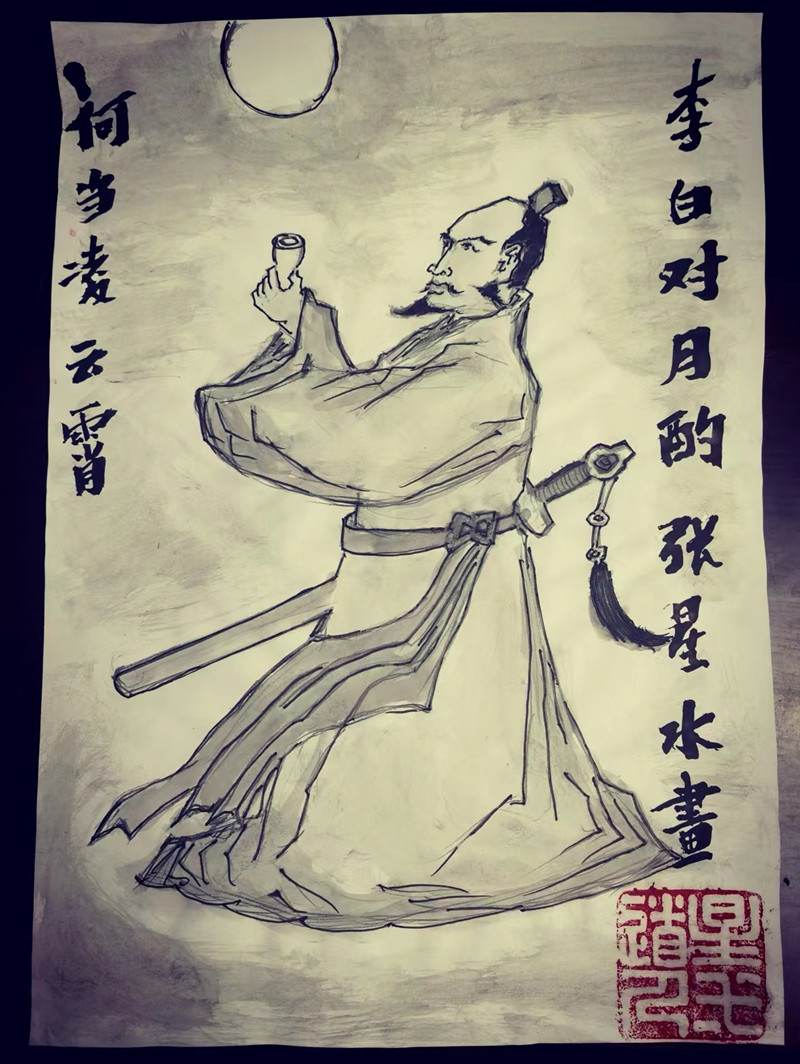 李白对月酌 张星水畫
何当凌云霄